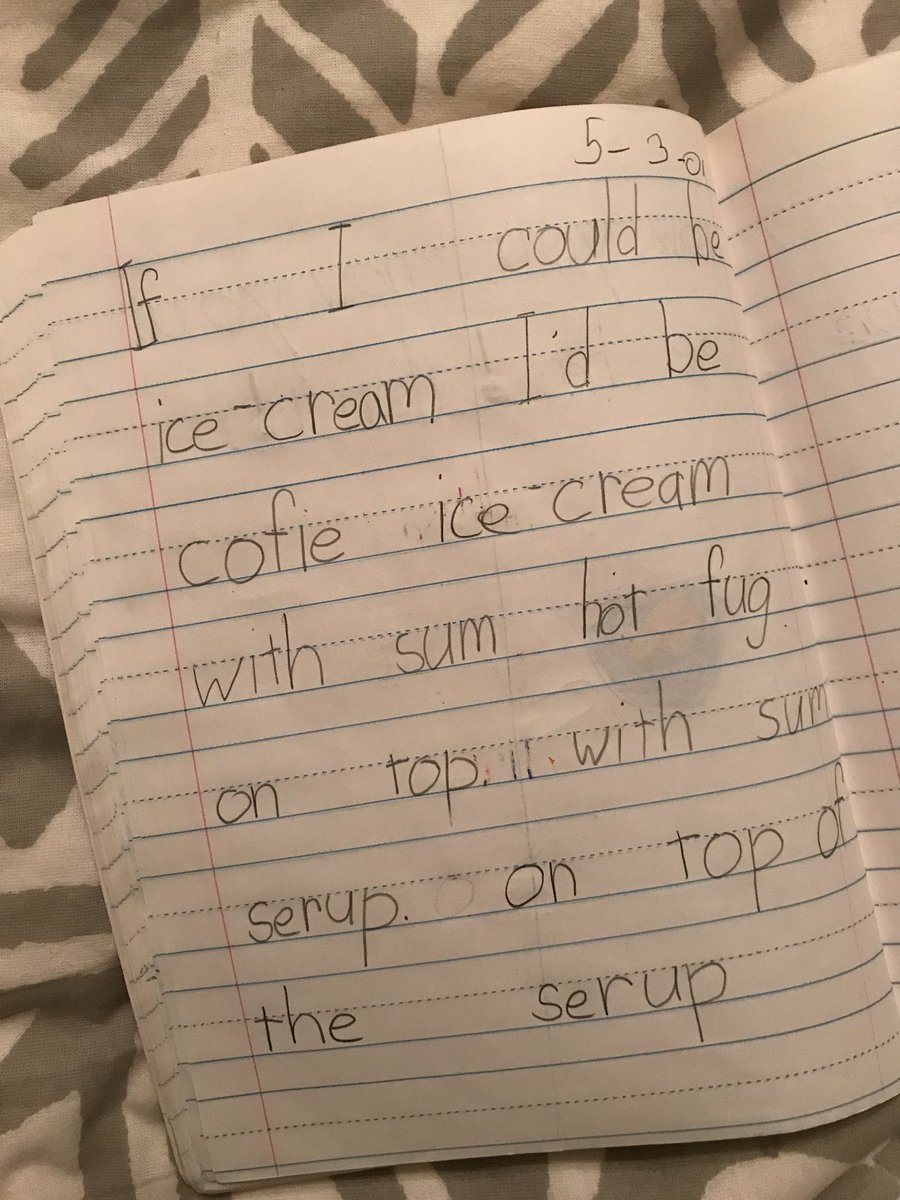 5-3-01
If I could be
ice-cream I'd be
cofie ice-cream
with sum hot fug.
on top. with sum
serup. on top of
the serup